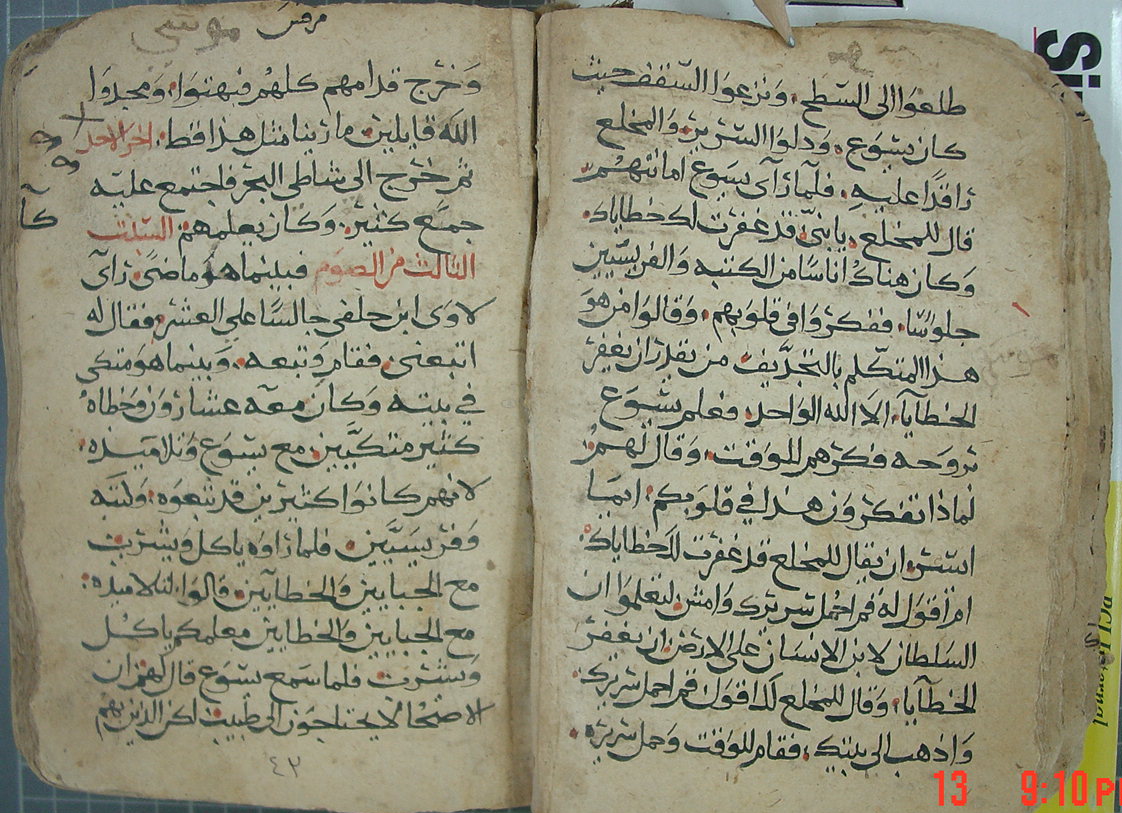 طلعوا الى السّطح. ونزعوا السّقف حيث
كان يشوع. ودلوا السّرير والمخلع
راقدًا عليه. فلما رأى يسوع امانتهم
قال للمخلع. يا بنيّ قد غفرت لك خطاياك.
وكان هناك أناسًا من الكتبه والفريسّيين
جلوسًا. ففكروا في قلوبهم. وقالوا من هو
هذا المتكلّم بالتجدّيف. من يقدر ان يغفر
الخطايا. الا الله الواحد. فعلم يشوع
بروحه فكرهم للوقت. وقال لهم:
لماذا تفكرون هذا في قلوبكم. ايمّا
ايسّر ان يقال للمخلع قد غفرت لك خطاياك.
ام اقول له قم احمل سريرك وامش. ليعلموا ان
السلطان لابن الانسان على الارض ان يغفر
الخطايا. وقال للمخلع لك اقول قم احمل سريرك.
واذهب الى بيتك. فقام للوقت وحمل سريره.
مرقس
موسي
وخرج قدامهم كلهم فبهتوا. ومجدوا
الله قايلين. ما راينا مثل هذا قط. اخر الاحد
ثم خرج الى شاطى البحر فاجتمع عليه
جمع كثير. وكان يعلمهم. السّبت
الثالث من الصوم فبينما هو ماضى راى
لاوى ابن حلفى جالسًا على العشر. فقال له
اتبعني. فقام وتبعه. وبينما هو متكي
في بيته وكان معه عشارون وخطاه
كثير متكيين. مع يشوع وتلاميذه.
لانهم كانوا كثيرين قد تبعوه. وكتبه
وفريسيّين. فلما راوه ياكل ويشرب
مع الجبايين والخطايين. قالوا لتلاميذه:
مع الجبايين والخطايين معلمكم ياكل
ويشرب فلما سمع يشوع قال لهم ان
الاصحّا لا يحتاجون الى طبيب لكن الذين بهم
٤٢
13 9:10 P